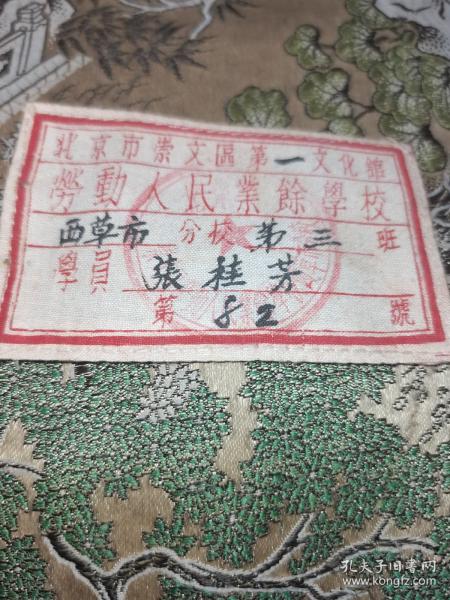 北京市崇文區第一文化館
勞動人民業餘學校
西草市分校第三班
學員張桂芳
第82號
孔夫子旧书网
www.kongfz.com